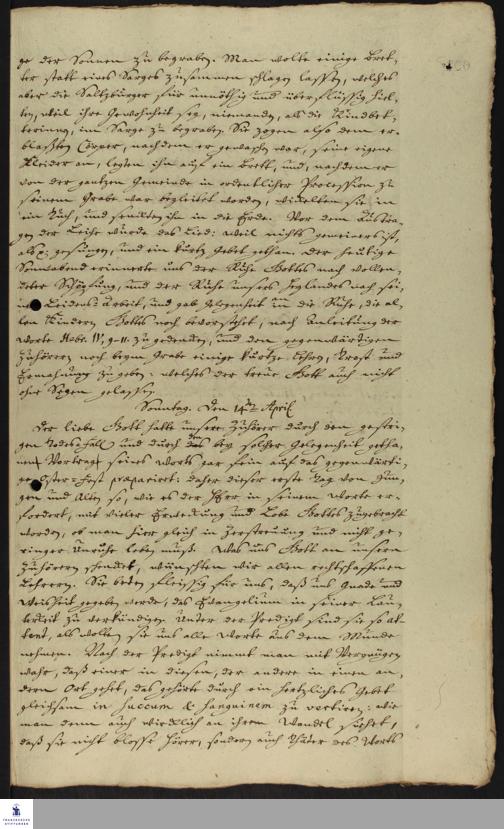 ge der Sonnen zu begraben. Man wolte einige Bret-
ter statt eines Sarges zusammen schlagen lassen, welches
aber die Saltzburger für unnöthig und überflüssig hiel-
ten, weil ihre Gewohnheit sey, niemanden, als die Kindbet-
terinnen, im Sarge zu begraben. Sie zogen also dem er-
blaßten Cörper, nachdem er gewaschen war, seine eigene
Kleider an, legten ihn auf ein Brett, und, nachdem er
von der gantzen Gemeinde in ordentlicher Procession zu
seinem Grabe war begleitet worden, wickelten sie in
ein Tuch, und senckten ihn in die Erde. Vor dem Austra-
gen der Leiche wurde das Lied: weil nichts gemeiners ist,
als gesungen, und ein kurtz Gebet gethan. Der heutige
Sonnabend erinnerte uns der Ruhe Gottes nach vollen-
deter Schöpfung, und der Ruhe unsers Heylandes nach sei-
ner Leidens-Arbeit, und gab Gelegenheit in die Ruhe, die al-
len Kindern Gottes noch bevorstehet, nach Anleitung der
Worte Hebr. IV, 9-11. zu gedencken, und den gegenwärtigen
Zuhörern noch beym Grabe einige kurtze Lehren, Trost und
Ermahnung zu geben: welches der treue Gott auch nicht
ohne Segen gelassen.
Sonntag. Den 14 April
Der liebe Gott hatte unsere Zuhörer durch den gestri-
gen Todes-Fall und durch den bey solcher Gelegenheit getha-
nen Vortrage seines Worts gar fein auf das gegenwärti-
ge Oster-Fest praepariert: daher dieser erste Tag von Jun-
gen und Alten so, wie es der Herr in seinem Worte er-
fordert, mit vieler Erweckung und Lobe Gottes zugebracht
worden, ob man hier gleich in Zerstreuung und nicht ge-
ringer Unruhe leben muß. Was uns Gott an unsern
Zuhörern schencket, wünschten wir allen rechtschaffenen
Lehrern. Sie beten fleissig für uns, daß uns Gnade und
Weisheit gegeben werde, das Evangelium in seiner Lau-
terkeit zu verkündigen. Unter der Predigt sind sie so at-
tent, als wolten sie uns alle Worte aus dem Munde
nehmen. Nach der Predigt nimmt man mit Vergnügen
wahr, daß einer in diesen, der andere in einen an-
dern Ort gehet, das gehörte durch ein hertzliches Gebet
gleichsam in Succum & sanguinem zu vertiren: wie
man denn auch wircklich an ihrem Wandel siehet,
daß sie nicht blosse Hörer, sondern auch Thäter des Worts
FRANCKESCHE
STIFTUNGEN